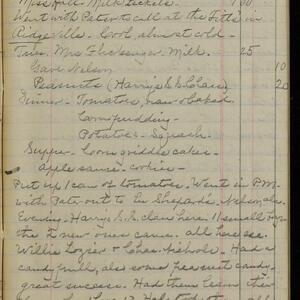 Miss Hall - Milk tickets. 1 00
Went with Pater to call at the Tuttles in
Ridgeville - Cool, almost cold -
Tues. Mrs Flickinger Milk. 25
Gave Nelson 10
Peanuts (Harry's S.S. Class) 20
Dinner - Tomatoes, raw & baked
Corn pudding -
Potatoes - Squash -
Supper - Corn griddle cakes -
apple sauce - cookies -
Put up 1 can of tomatoes. Went in P.M.
with Pater out to
Evening - Harry's S.S. class here. 11 small boys
the 2 new ones came. all here
Willie Lozier & Chas. Nichols - Had a
candy pull, also some peanut candy -
great success. Had them learn their